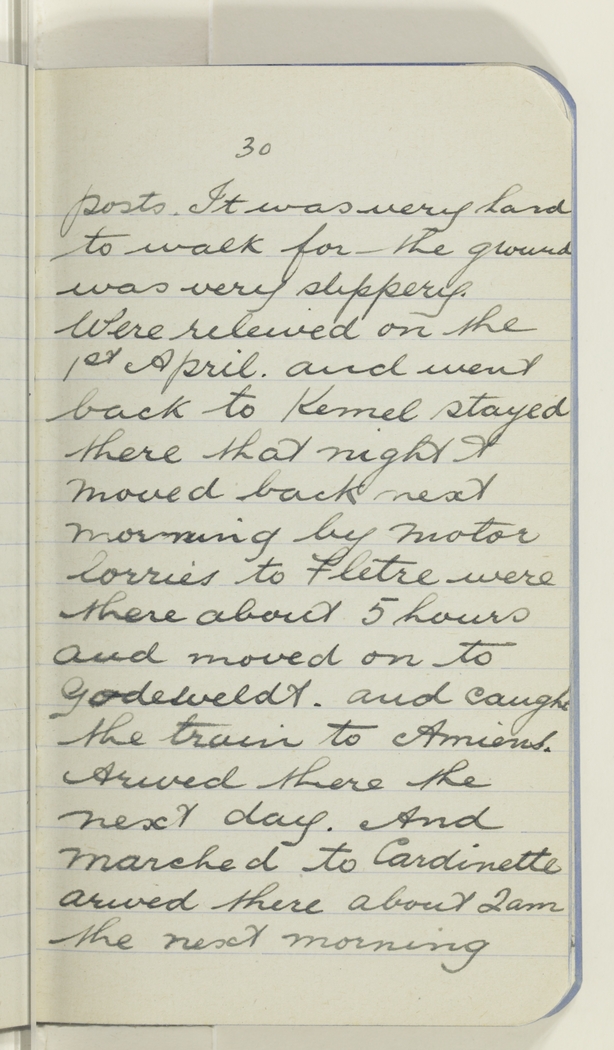 30
posts. It was very hard
to walk for the ground
was very slippery.
Were releived on the
1st April. and went
back to Kemel stayed
there that night &
moved back next
morning by motor
lorries to Fletre were
there about 5 hours
and moved on to
Godeweldt. and caught
the train to Amiens.
Arived there the
next day. And
marched to Cardinette
arived there about 2am
the next morning